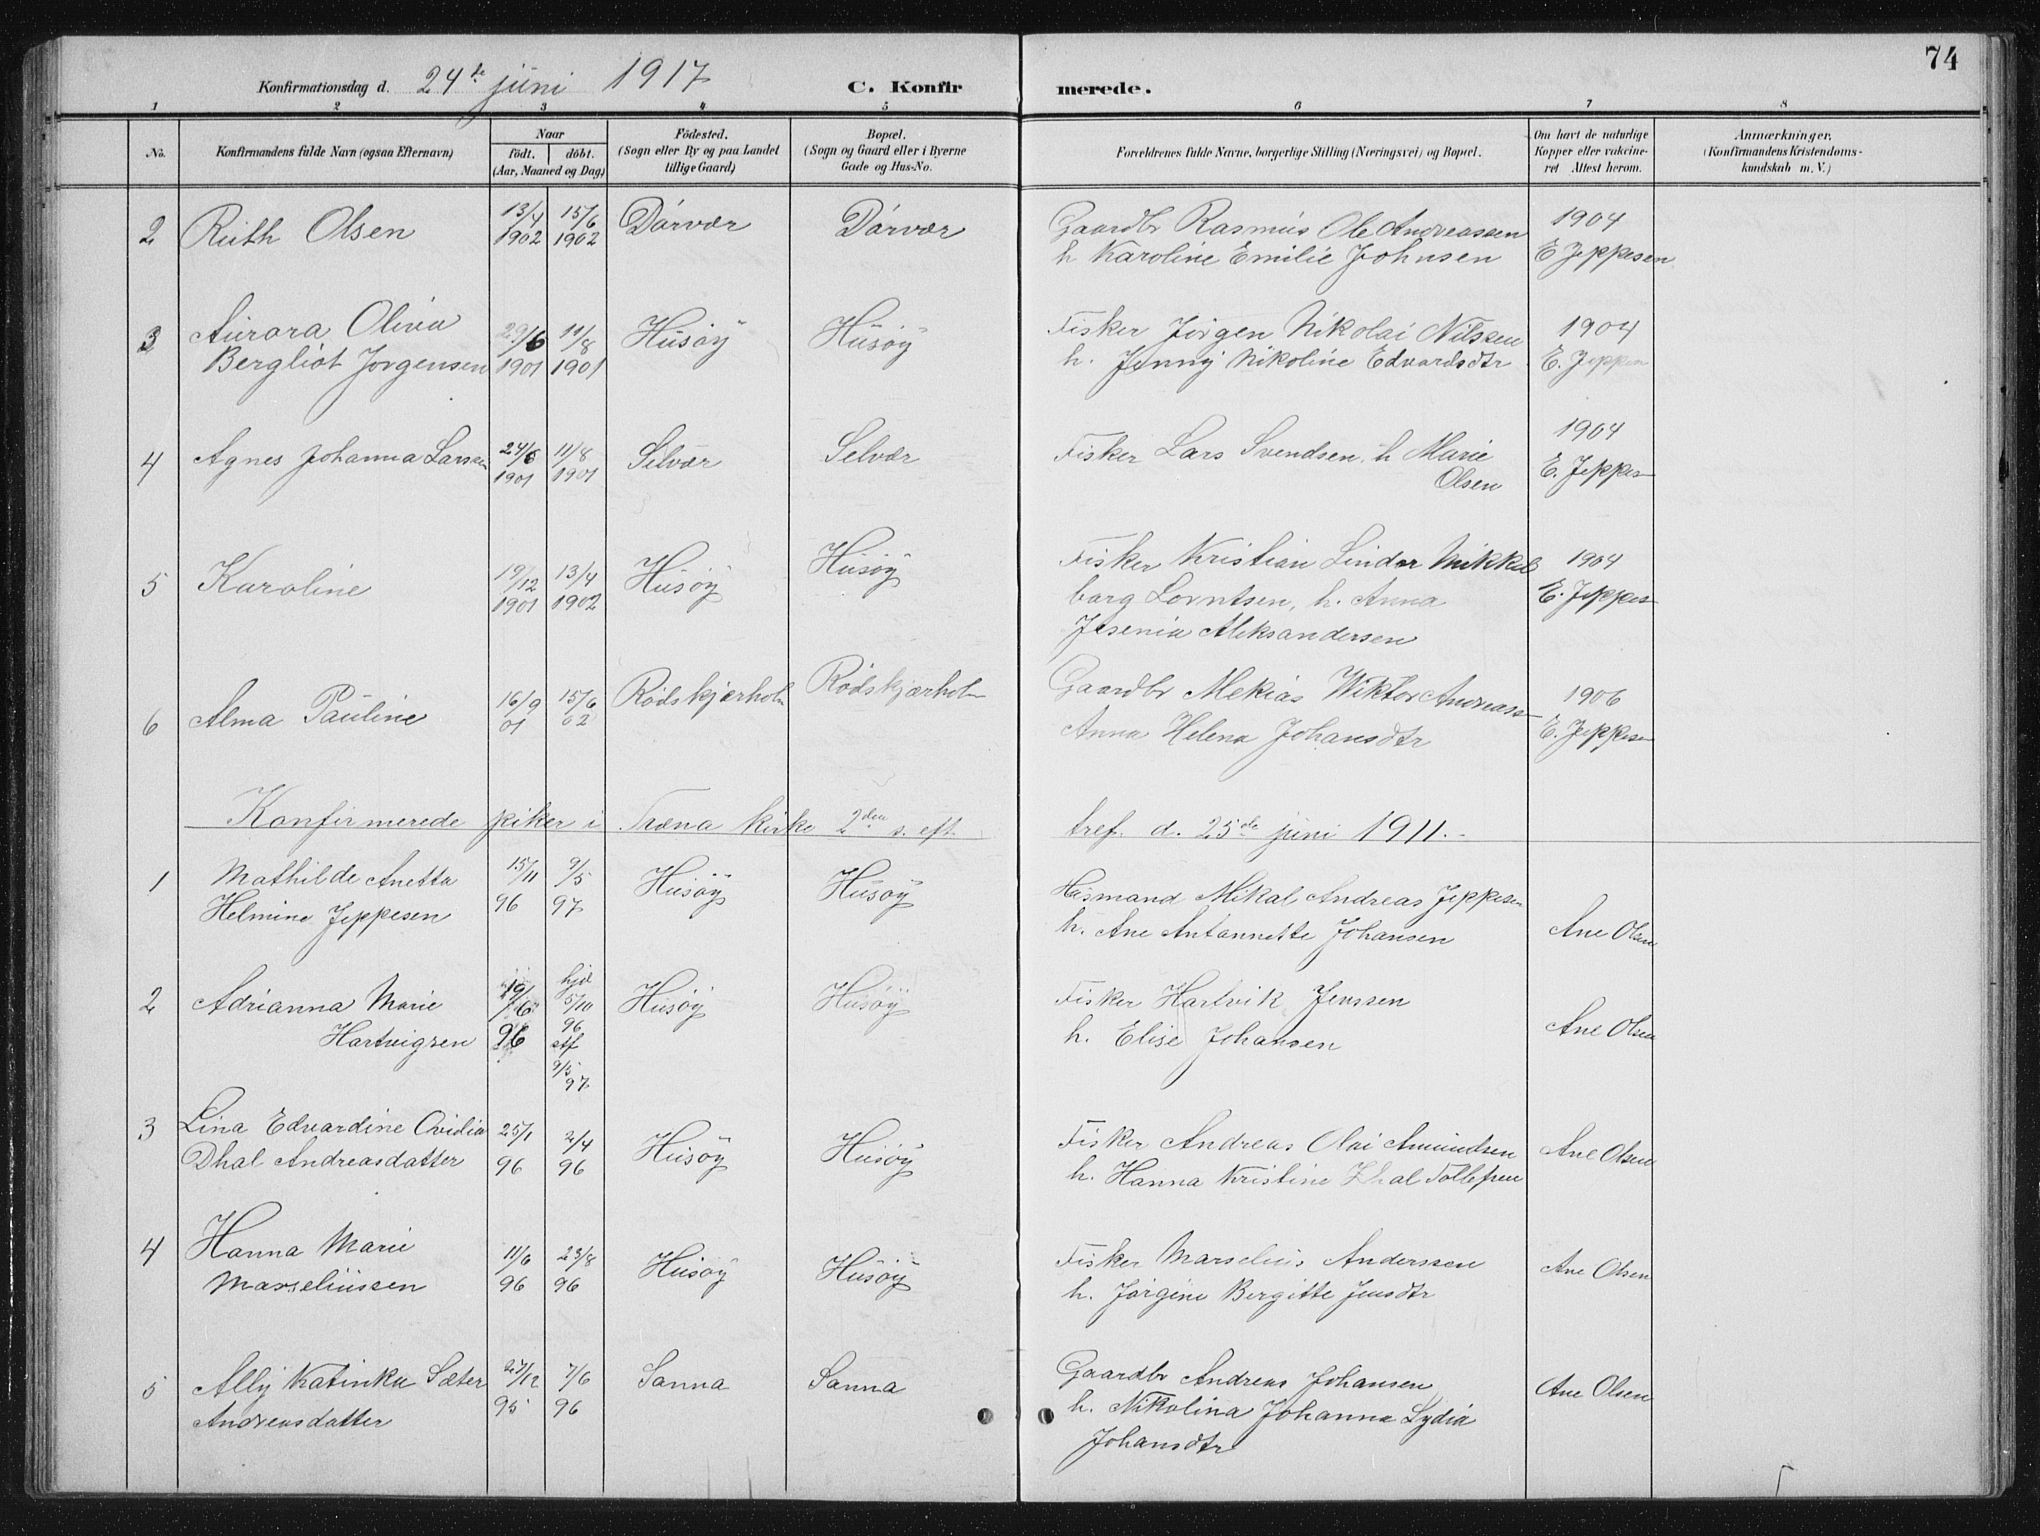 74
Konfirmationsdag d. 24de juni 1917 C. Konfirmerede.
1 2 3 4 5 6 7 8
No. Konfirmandens fulde Navn (ogsaa Efternavn) Naar født. døbt. (Aar, Maaned og Dag) Fødested. (Sogn eller By og paa Landet tillige Gaard) Bopæl. (Sogn og Gaard eller i Byerne Gade og Hus-No. Forældrenes fulde Navne, borgerlige Stilling (Næringsvei) og Bopæl. Om havt de naturlige Kopper eller vakcineret Attest herom. Anmærkninger. (Konfirmandens Kristendomskundskab m. V.)
2 Ruth Olsen 13/4 1902 15/6 1902 Dørvær Dørvær Gaardbr Rasmus Ole Andreassen 1904
h Karoline Emilie Johnsen E Jeppesen
3 Aurora Olivia 29/6 11/8 Husøy Husøy Fisker Jørgen Nikolai Nilssen 1904
Bergliot Jorgensen 1901 1901 h. Jenny Nikoline Edvardsdtr E. Jeppesen
4 Agnes Johanna Larsen 24/6 1901 11/8 1901 Selvær Selvær Fisker Lars Svendsen, h Marie 1904
Olsen E. Jeppesen
5 Karoline 19/12 1901 13/4 1902 Husøy Husøy Fisker Kristian Linder Mikkel 1904
borg Lorntsen, h. Anna E. Jeppesen
Jesenia Aleksandersen
6 Alma Pauline 16/9 01 15/6 02 Rødskjærholm Rødskjærholm Gaardbr Mekias Wiktor Andreass 1906
Anna Helena Johansdtr E. Jeppesen
Konfirmerede piker i Træna kirke 2den s. eft. tref. d. 25de juni 1911.
1 Mathilde Anetta 15/11 9/5 Husøy Husøy Husmand Mikal Andreas Jeppesen
Helmine Jeppesen 96 97 h. Ane Antannette Johansen Ane Olsen
2 Adrianna Marie 19/6 hjd 5/10 Husøy Husøy Fisker Hartvik Jenssen
Hartvigsen 96 96 stf 9/5 97 h. Elise Johansen Ane Olsen
3 Lina Edvardine Ovidia 25/1 2/4 Husøy Husøy Fisker Andreas Olai Amundsen Ane Olsen
Dhal Andreasdatter 96 96 h. Hanna Kristine Dhal Tollefsen
4 Hanna Marie 11/6 23/8 Husøy Husøy Fisker Marselius Anderssen Ane Olsen
Marseliussen 96 96 h. Jørgine Bergitte Jensdtr
5 Ally Katinka Sæter 27/12 7/6 Sanna Sanna Gaardbr Andreas Johansen Ane Olsen
Andreasdatter 95 96 h. Nikolina Johanna Lydia
Johansdtr